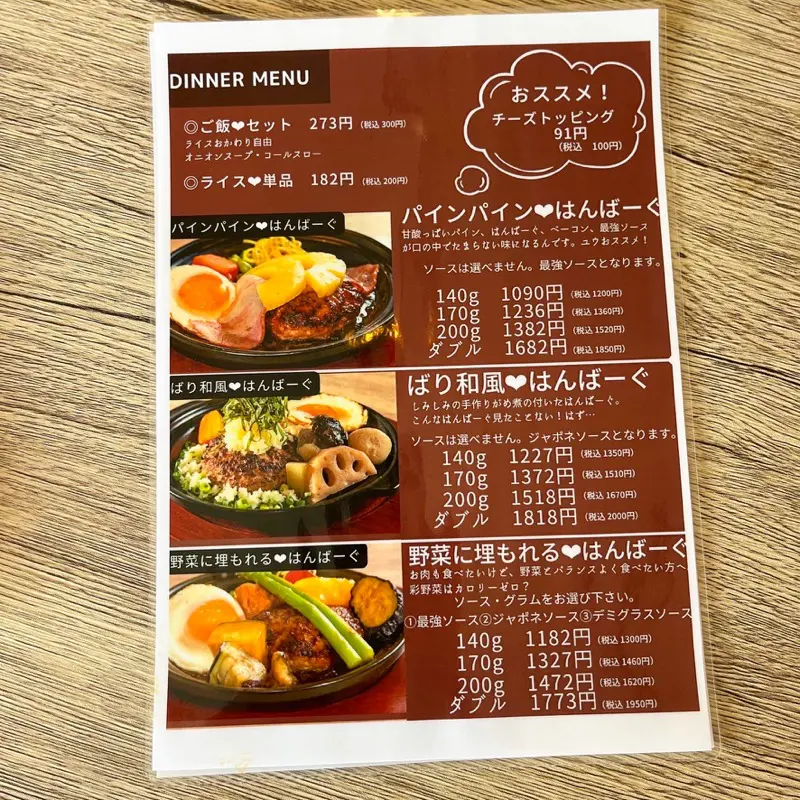 DINNER MENU
◎ご飯❤セット 273円 (税込 300円)
ライスおかわり自由
オニオンスープ・コールスロー
◎ライス❤単品 182円 (税込 200円)
おススメ！
チーズトッピング
91円
(税込 100円)
パインパイン❤はんばーぐ
パインパイン❤はんばーぐ
甘酸っぱいパイン、はんばーぐ、ベーコン、最強ソース
が口の中でたまらない味になるんです。ユウおススメ！
ソースは選べません。最強ソースとなります。
140g 1090円 (税込 1200円)
170g 1236円 (税込 1360円)
200g 1382円 (税込 1520円)
ダブル 1682円 (税込 1850円)
ばり和風❤はんばーぐ
ばり和風❤はんばーぐ
しみしみの手作りがめ煮の付いたはんばーぐ。
こんなはんばーぐ見たことない！はず…
ソースは選べません。ジャポネソースとなります。
140g 1227円 (税込 1350円)
170g 1372円 (税込 1510円)
200g 1518円 (税込 1670円)
ダブル 1818円 (税込 2000円)
野菜に埋もれる❤はんばーぐ
野菜に埋もれる❤はんばーぐ
お肉も食べたいけど、野菜とバランスよく食べたい方へ
彩野菜はカロリーゼロ？
ソース・グラムをお選び下さい。
①最強ソース②ジャポネソース③デミグラスソース
140g 1182円 (税込 1300円)
170g 1327円 (税込 1460円)
200g 1472円 (税込 1620円)
ダブル 1773円 (税込 1950円)